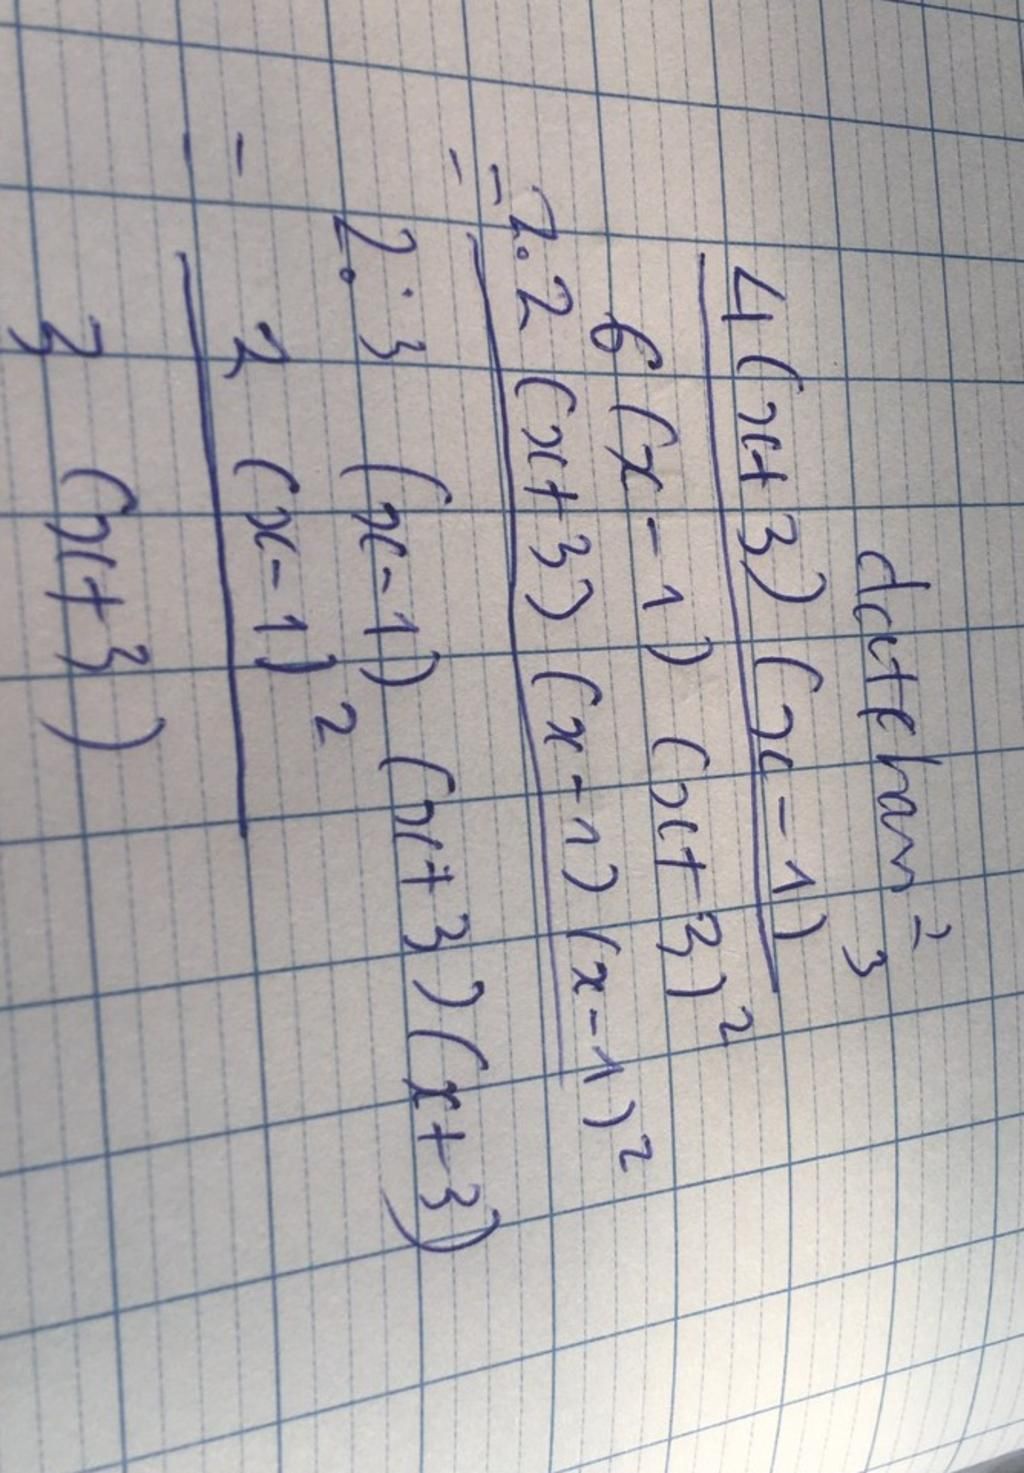 datehan 2
4(x+3) (x-1)³
6(x-1) (x+3)²
= 2.2 (x+3) (x-1) (x-1)²
2.3 (x-1) (x+3) (x+3)
= 2 (x-1)²
3 (x+3)